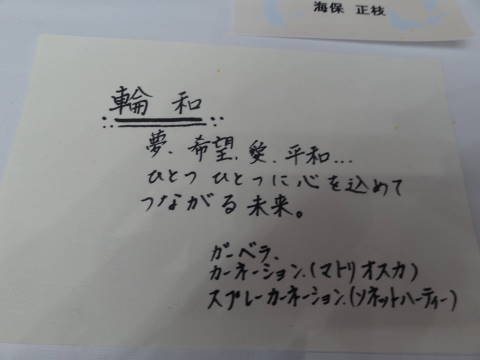 海保 正枝
輪 和
夢、希望、愛、平和...
ひとつ ひとつに心を込めて
つながる未来。
ガーベラ、
カーネーション、(マトリオスカ)
スプレーカーネーション、(ソネットハーティー)